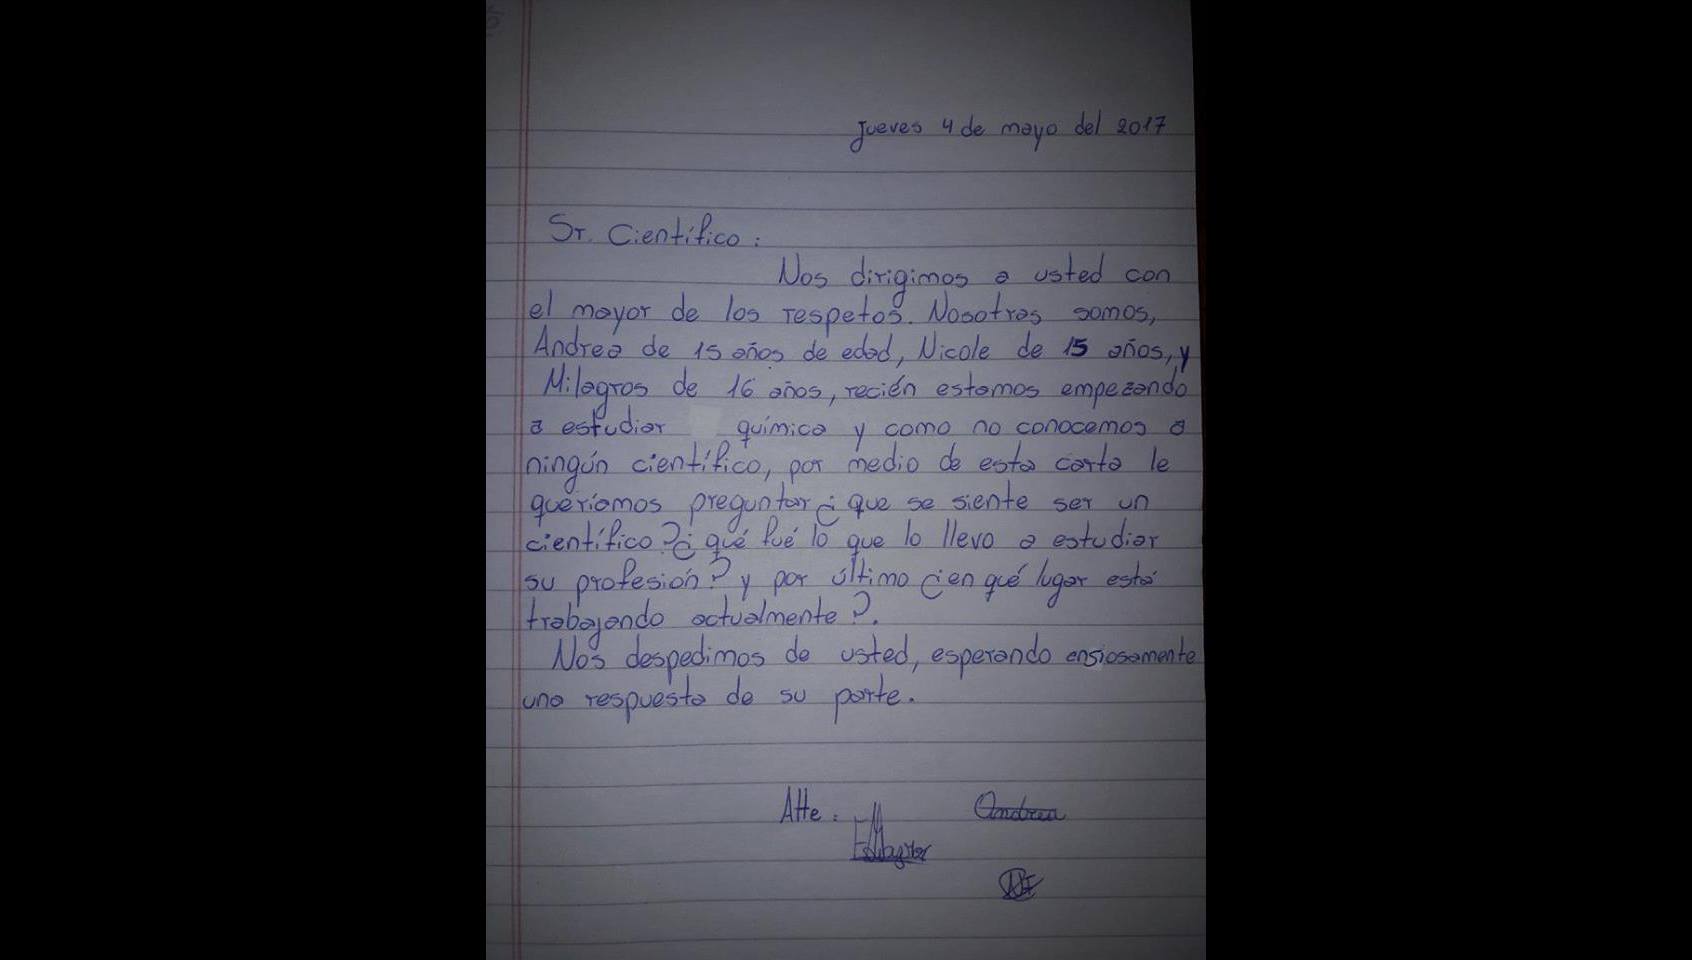 Jueves 4 de mayo del 2017
Sr. Científico:
Nos dirigimos a usted con
el mayor de los respetos. Nosotras somos,
Andrea de 15 años de edad, Nicole de 15 años, y
Milagros de 16 años, recién estamos empezando
a estudiar química y como no conocemos a
ningún científico, por medio de esta carta le
queríamos preguntar ¿ que se siente ser un
científico? ¿ qué fué lo que lo llevo a estudiar
su profesión? y por último ¿en qué lugar está
trabajando actualmente?.
Nos despedimos de usted, esperando ansiosamente
una respuesta de su parte.
Atte:
Andrea